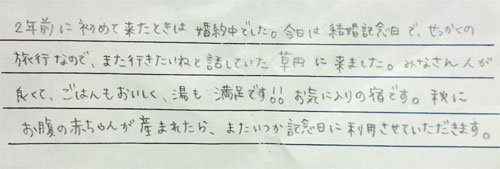 2年前に初めて来たときは婚約中でした。今日は結婚記念日で、せっかくの
旅行なので、また行きたいねと話していた草円に来ました。みなさん人が
良くて、ごはんもおいしく、湯も満足です!! お気に入りの宿です。秋に
お腹の赤ちゃんが産まれたら、またいつか記念日に利用させていただきます。